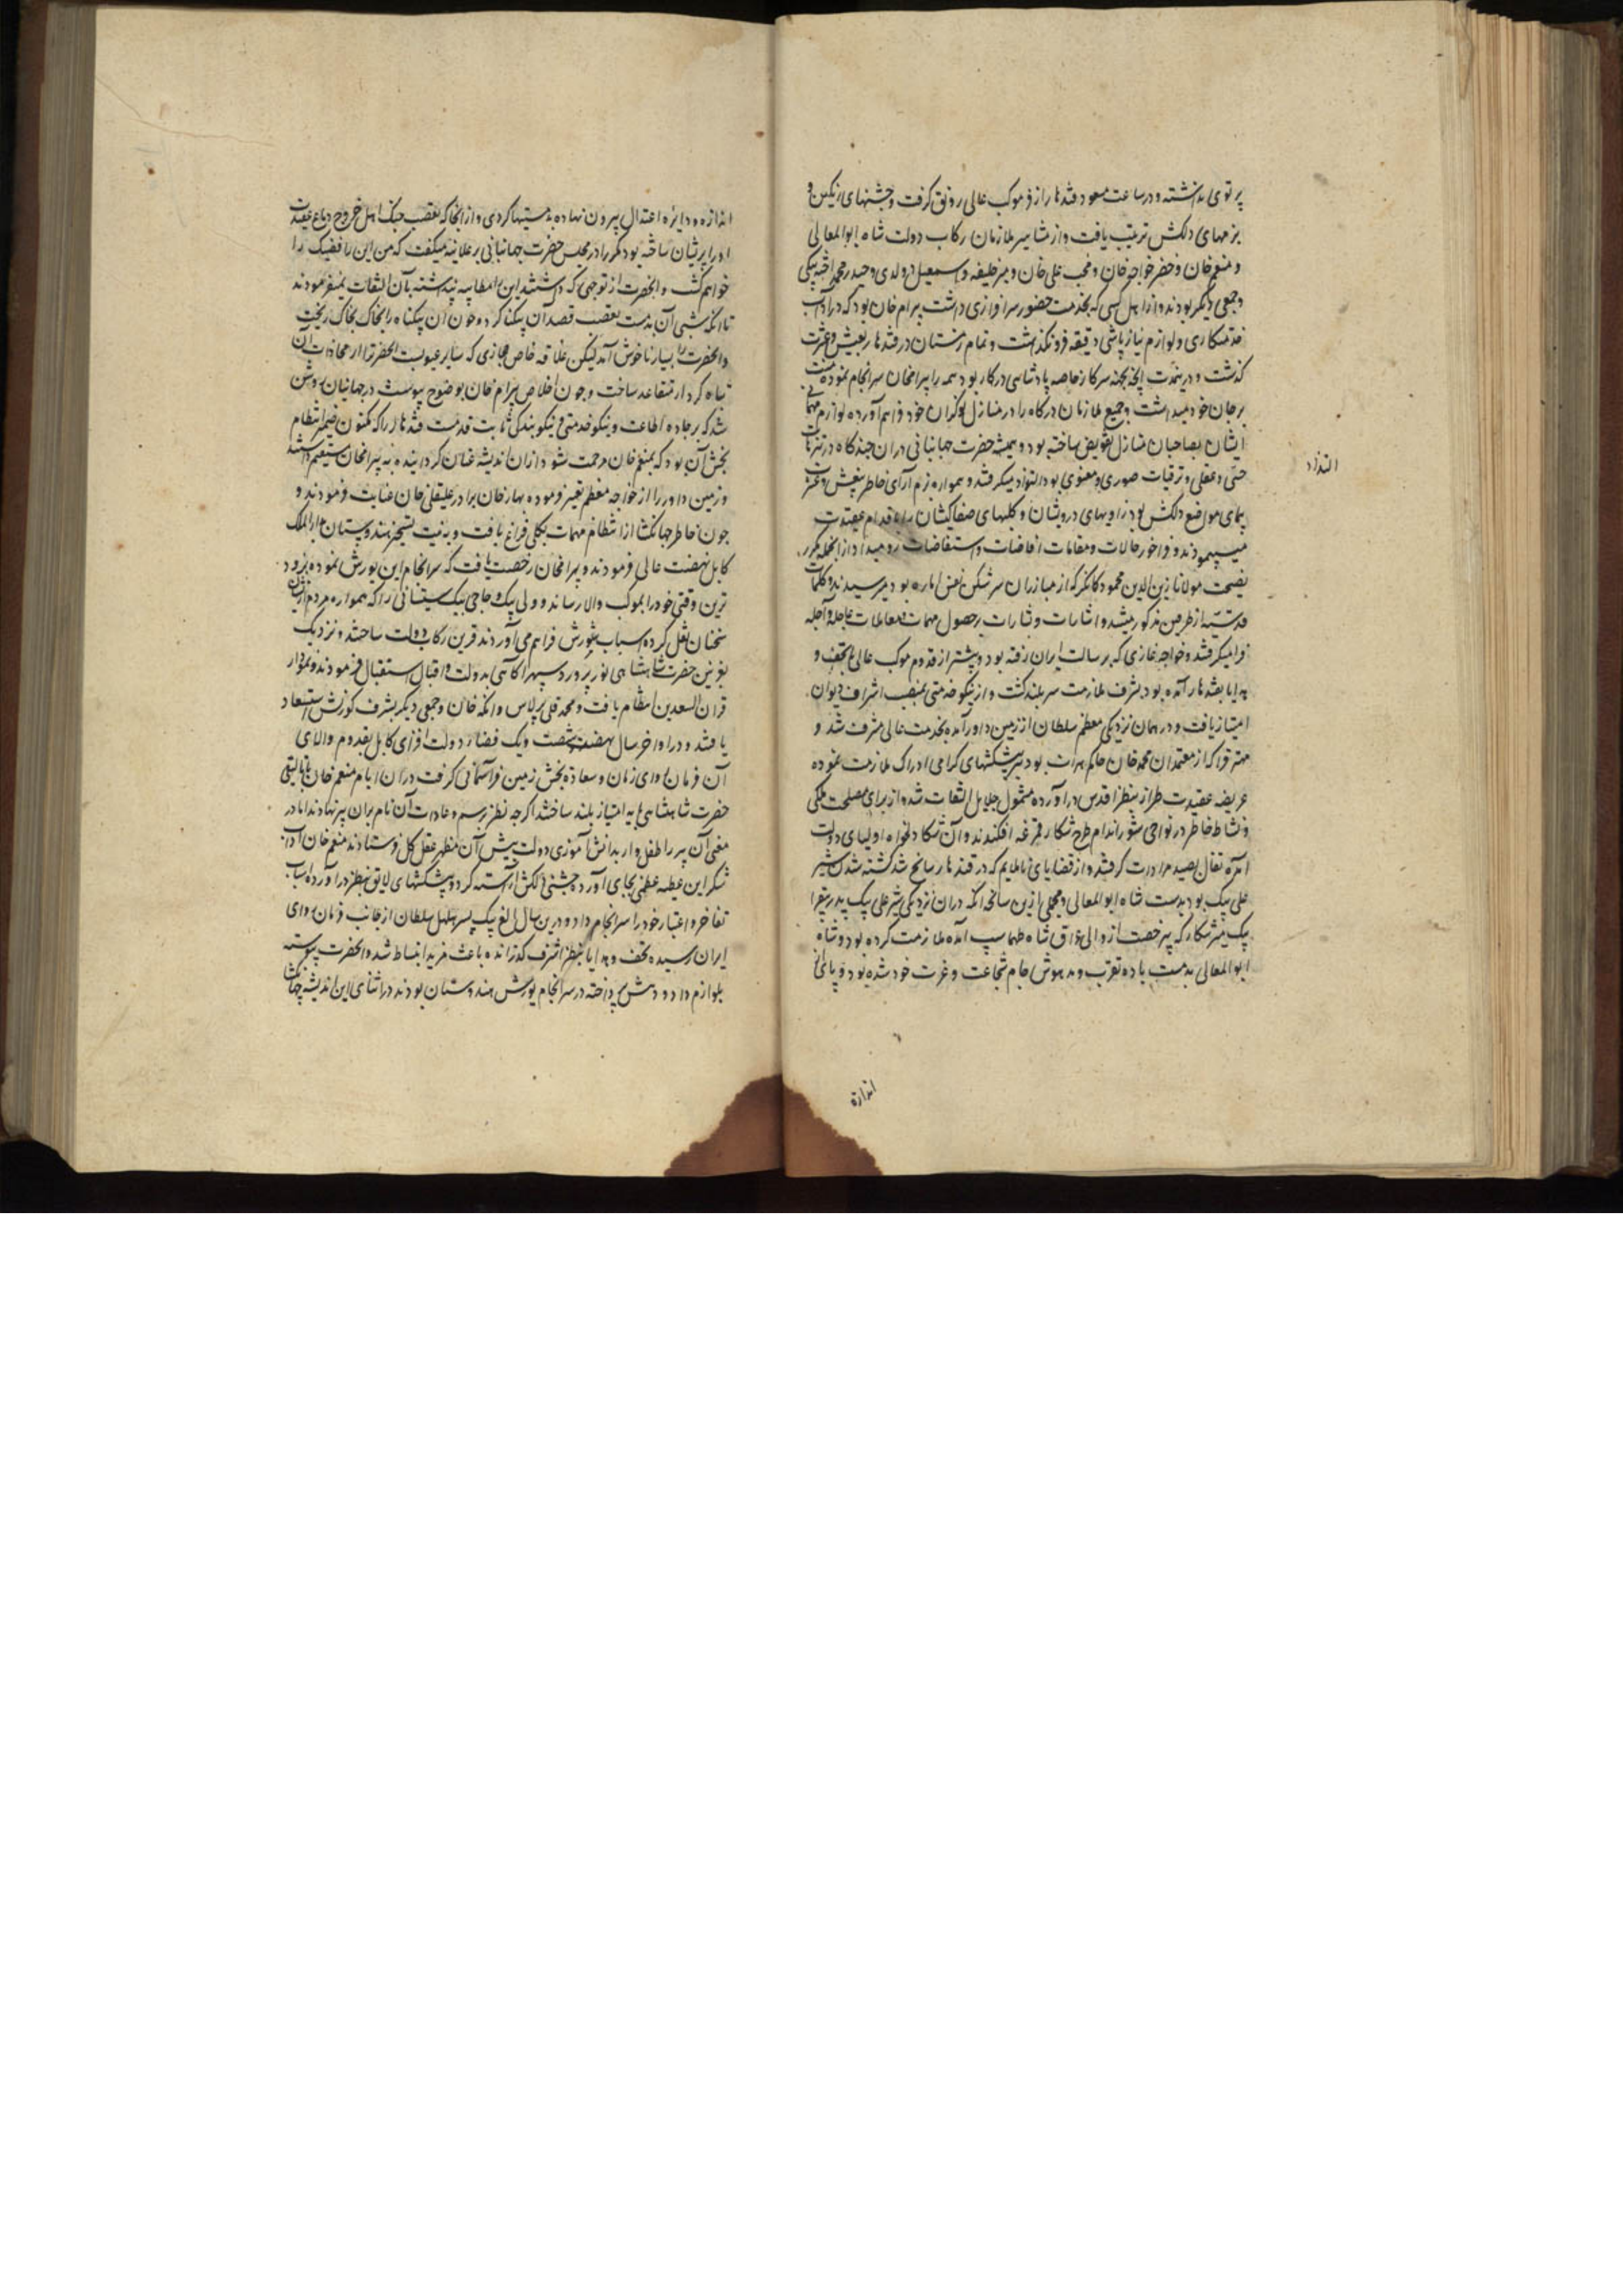 پرتوی بداشته و در ساعت مسعود قندهار از فر موکب عالی رونق گرفت و جشنهای رنگین و
بزمهای دلکش ترتیب یافت و از مشاهیر ملازمان رکاب دولت شاه ابوالمعالی
و منعم خان و خضر خواجه خان و محب علی خان و میر خلیفه و اسمعیل دولدی و حیدر محمد اخته بیگی
و جمعی دیگر بودند و از اهل کسی که بخدمت حضور سرافرازی داشت بیرام خان بود که در آداب
خدمتکاری و لوازم نیازپاشی دقیقه فرو نگذاشت و تمام زمستان در قندهار بعیش و عشرت
گذشت و درینمدت آنچه بجهته سرکار خاصه پادشاهی درکار بود همه را بیرامخان سرانجام نموده منت
بر جان خود میداشت و جمیع ملازمان درگاه را در منازل نوکران خود فراهم آورده لوازم مهمانی
ایشان بصاحبان منازل تفویض ساخته بود و همیشه حضرت جهانبانی دران چندگاه در تنزهات
حسی و عقلی و ترقیات صوری و معنوی بود التذاذ میگرفتند و همواره بزم آرای خاطر
مواضع دلکش بود زاویهای درویشان و کلبهای صفاکیشان را باقدام عقیدت
میپیمودند و فراخور حالات و مقامات افاضات و استفاضات رو میداد ازانجمله مکرر
بصحبت مولانا زین الدین محمود کمانگر که از مبارزان سرشکن نفس اماره بود میرسیدند و کلمات
قدسیه از طرفین مذکور میشد و اشارات و بشارات بر حصول مهمات و معاملات عاجله و آجله
فرا میگرفتند و خواجه غازی که برسالت ایران رفته بود و پیشتر از قدوم موکب عالی با تحف و
هدایا بقندهار آمده بود بشرف ملازمت سربلند گشت و از نیکو خدمتی بمنصب اشراف دیوان
امتیاز یافت و در همان نزدیکی معظم سلطان از زمین داور آمده بخدمت عالی مشرف شد و
مهتر قرا که از معتمدان محمد خان حاکم هرات بود با پیشکشهای گرامی ادراک ملازمت نموده
عریضه عقیدت طراز بنظر اقدس درآورده مشمول جلایل التفات شد و از برای مصلحت ملکی
و نشاط خاطر در نواحی شوراندام طرح شکار قمرغه افکندند و آن شکار دلخواه اولیای دولت
آمده تفال بصید مرادات گرفتند و از قضایای ناملایم که در قندهار سانح شد کشته شدن شیر
علی بیک بود بدست شاه ابوالمعالی و مجملی ازین سانحه آنکه دران نزدیکی شیر علی بیک پدر قرا
بیک میرشکار که بی رخصت از والی عراق شاه طهماسب آمده ملازمت کرده بود و شاه
ابوالمعالی بدمست باده تقرب و مدهوش جام شجاعت و غرت خود شده بود و پای از
التذاذ
اندازه
اندازه و دایره اعتدال بیرون نهاده بدمستیها کردی و ازانجا که تعصب اهل خروج
او را پریشان ساخته بود مکررا در مجلس حضرت جهانبانی بر علانیه میگفت که من این رافضیک را
خواهم کشت و آنحضرت از توجهی که داشتند این را مطایبه پنداشته بآن التفات نمیفرمودند
تا آنکه شبی آن بدمست تعصب قصد آن بیگناه کرد و خون آن بیگناه را بخاک ریخت
و آنحضرت را بسیار ناخوش آمد لیکن علاقه خاص مجازی که ساتر عیوبست آنحضرت را از مجازات آن
تباه کردار متقاعد ساخت و چون اخلاص بیرام خان بوضوح پیوست و بر جهانیان روشن
شد که بر جاده اطاعت و نیکو خدمتی و نیکو بندگی ثابت قدمست قندهار را که مکنون ضمیر انتظام
بخش آن بود که بمنعم خان مرحمت شود ازان اندیشه عنان گردانیده به بیرامخان مستقیم داشتند
و زمین داور را از خواجه معظم تغیر فرموده بهادر خان برادر علیقلی خان عنایت فرمودند و
چون خاطر جهانگشا از انتظام مهمات بکلی فراغ یافت و به نیت تسخیر هندوستان بدارالملک
کابل نهضت عالی فرمودند و بیرامخان رخصت یافت که سرانجام این یورش نموده بزود
ترین وقتی خود را بموکب والا رساند و ولی بیک و حاجی بیک سیستانی را که همواره مردم ازیشان
سخنان نقل کرده اسباب شورش فراهم می آوردند قرین رکاب دولت ساختند و نزدیک
بغزنین حضرت شاهنشاهی نورپرورد سپهر آگاهی بدولت و اقبال استقبال فرمودند و نمودار
قران السعدین انتظام یافت و محمد قلی برلاس و اتکه خان و جمعی دیگر بشرف کورنش استسعاد
یافتند و در اواخر سال نهصد و شصت و یک فضای دولت افزای کابل بقدوم والای
آن فرمان روای زمان و سعادت بخش زمین فر آسمانی گرفت دران ایام منعم خان باتالیقی
حضرت شاهنشاهی پایه امتیاز بلند ساختند اگر چه نظر برسم و عادت آن نام بران پیر نهادند اما در
معنی آن پیر را طفل وار بدانش آموزی دولت پیش آن مظهر عقل کل فرستادند منعم خان آداب
شکر این عطیه عظمی بجای آورده جشنی دلکش آراسته کرد و پیشکشهای لایق بنظر درآورده اسباب
تفاخر و اعتبار خود را سرانجام داد و درین سال الغ بیک پسر هلهل سلطان از جانب فرمان روای
ایران رسیده تحف و هدایا بنظر اشرف گذرانده باعث مزید انبساط شد و آنحضرت پیوسته
بلوازم داد و دهش پرداخته در سرانجام یورش هندوستان بودند در اثنای این اندیشه جهانگشا